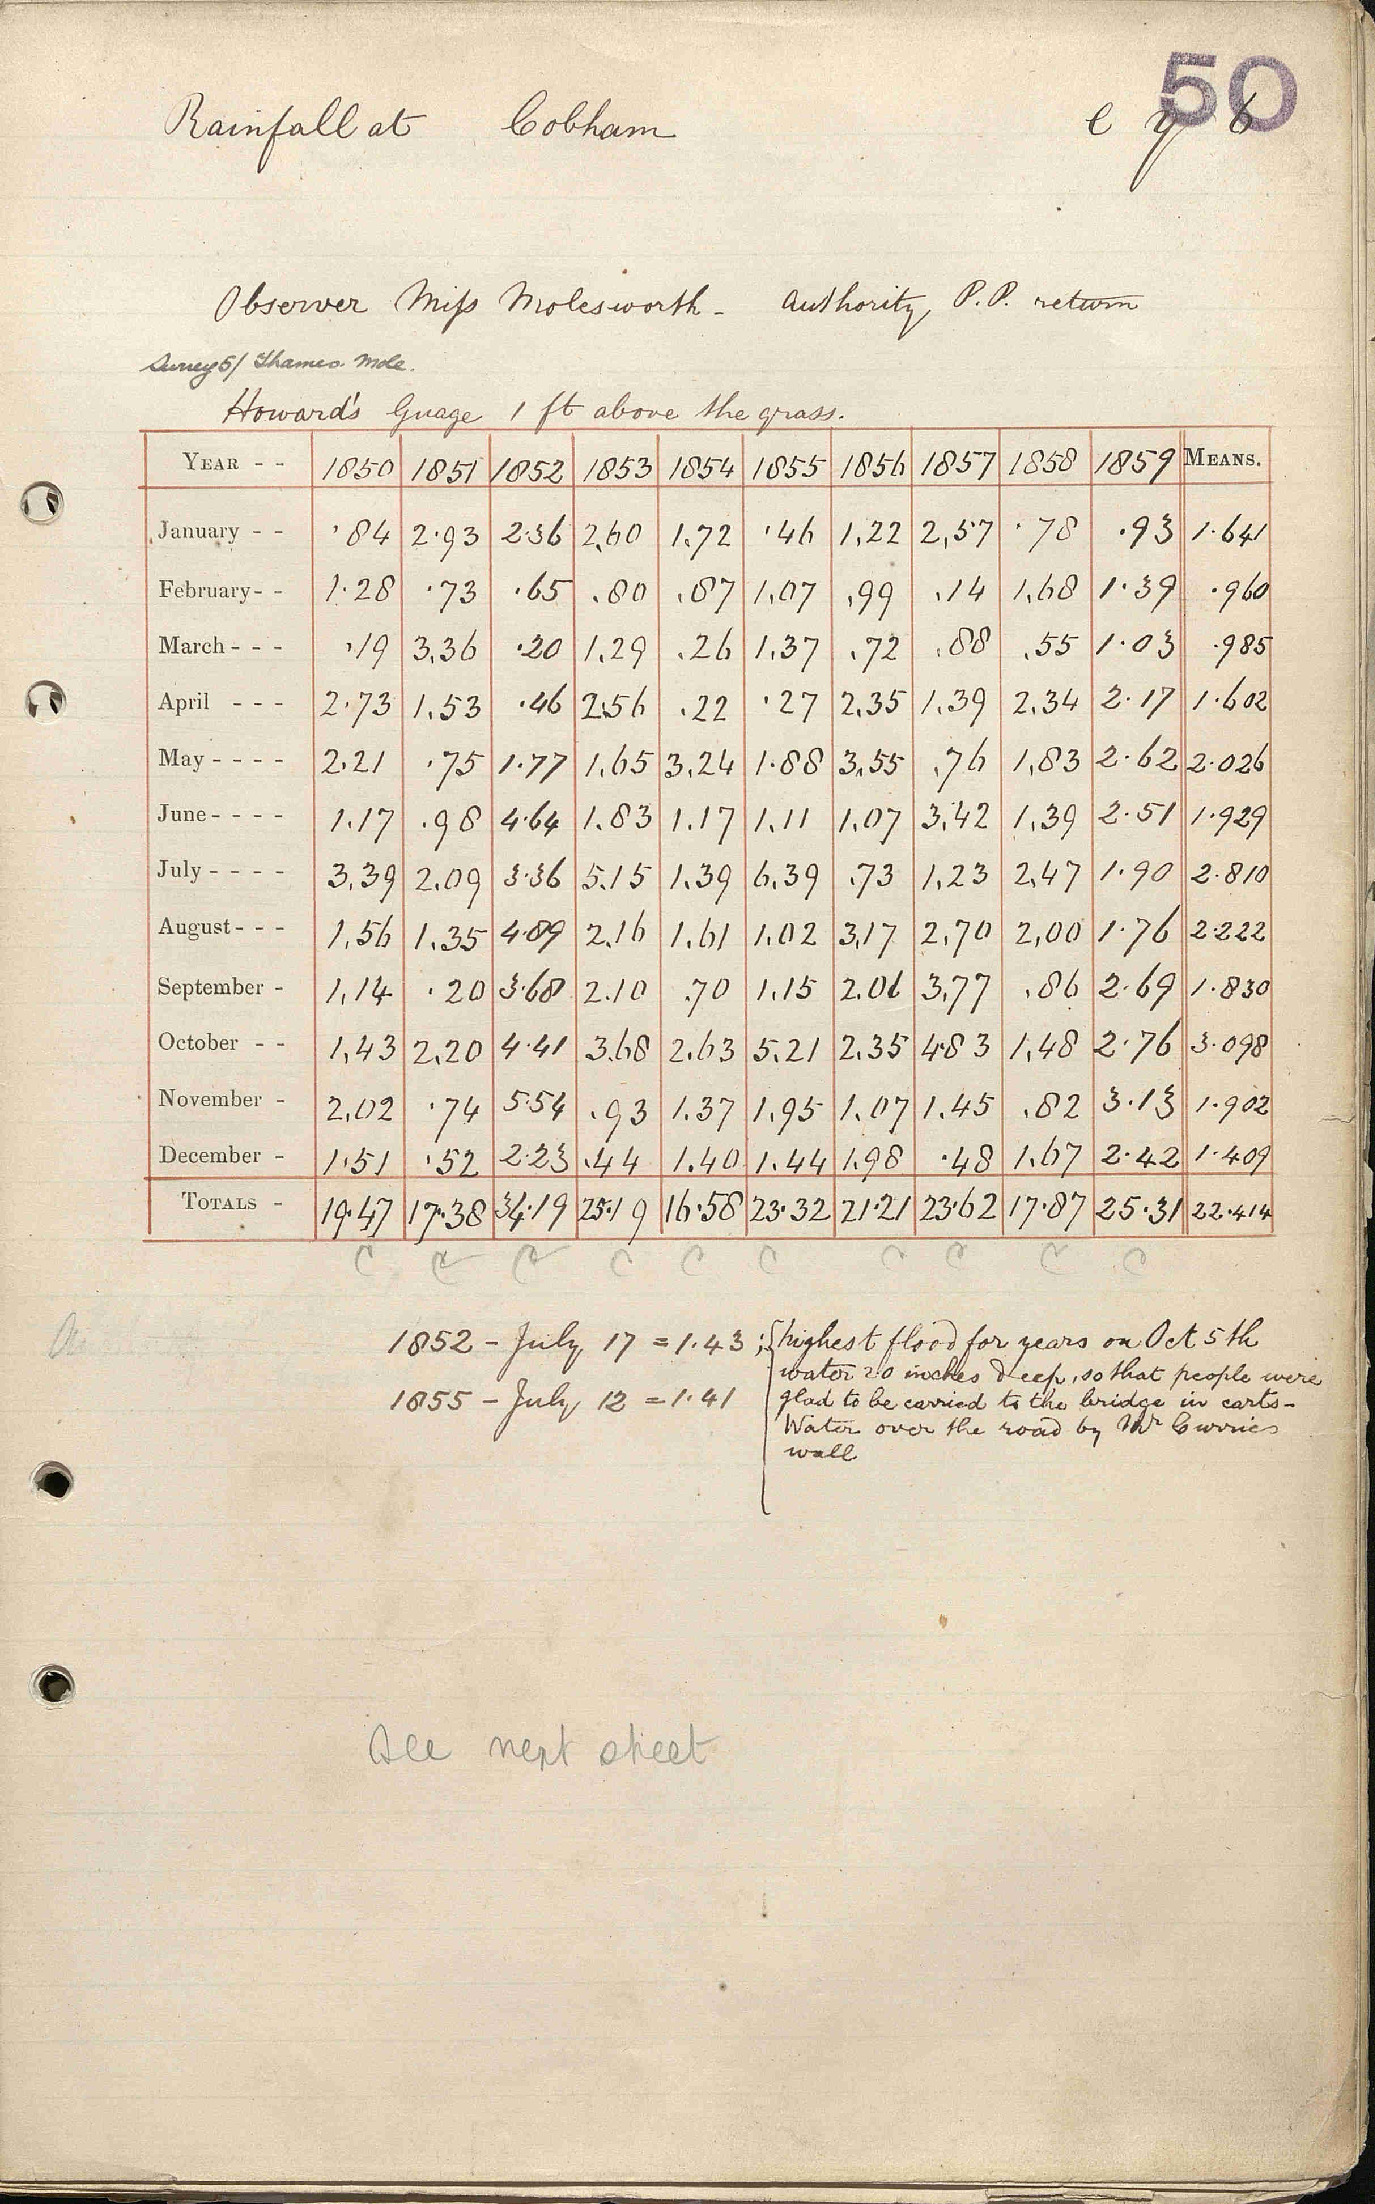 50
Rainfall at Cobham e y b
Observer Miss Molesworth - Authority P.P. return
Surrey 5/ Thames. Mole.
Howard's Guage 1 ft above the grass.
YEAR - - 1850 1851 1852 1853 1854 1855 1856 1857 1858 1859 MEANS.
January - - ·84 2·93 2·36 2,60 1,72 ·46 1,22 2,57 ·78 ·93 1·641
February - - 1·28 ·73 ·65 .80 .87 1,07 ,99 .14 1,68 1·39 ·960
March - - - ·19 3,36 ·20 1,29 .26 1,37 .72 .88 .55 1·03 ·985
April - - - 2·73 1,53 ·46 2.56 .22 ·27 2,35 1,39 2,34 2·17 1·602
May - - - - 2.21 ·75 1·77 1,65 3,24 1·88 3,55 ,76 1,83 2·62 2·026
June - - - - 1.17 .98 4·64 1.83 1.17 1,11 1,07 3,42 1,39 2·51 1·929
July - - - - 3,39 2,09 3·36 5.15 1,39 6,39 .73 1,23 2,47 1·90 2·810
August - - - 1,56 1,35 4·89 2.16 1,61 1,02 3,17 2,70 2,00 1·76 2·222
September - 1,14 ·20 3·68 2.10 .70 1,15 2.06 3,77 .86 2·69 1·830
October - - 1,43 2,20 4·41 3.68 2,63 5,21 2,35 4.83 1,48 2·76 3·098
November - 2,02 ·74 5·54 .93 1.37 1,95 1,07 1.45 .82 3·13 1·902
December - 1·51 ·52 2·23 .44 1,40 1.44 1,98 ·48 1,67 2·42 1·409
TOTALS - 19·47 17·38 34·19 25·19 16·58 23·32 21·21 23·62 17·87 25·31 22·414
C C C C C C C C C C
1852 - July 17 = 1·43 ; highest flood for years on Oct 5th
water 20 inches deep, so that people were
1855 - July 12 = 1·41 glad to be carried to the bridge in carts -
Water over the road by Mr Curries
wall
See next sheet